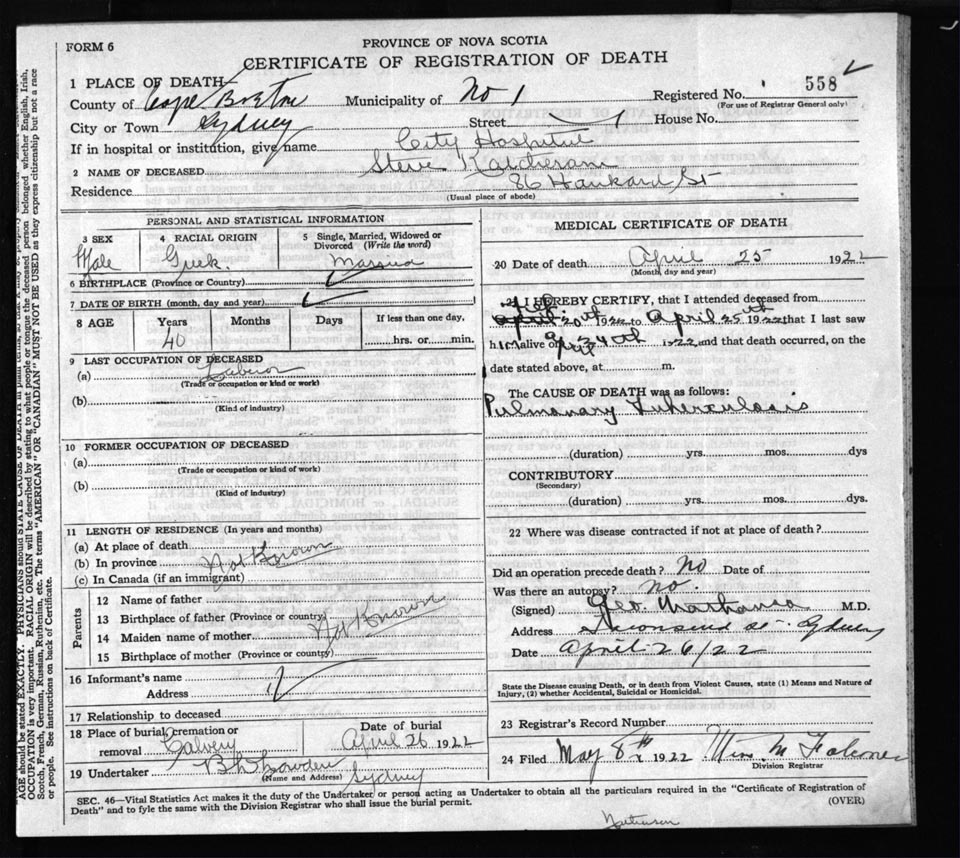 FORM 6
PROVINCE OF NOVA SCOTIA
CERTIFICATE OF REGISTRATION OF DEATH
1 PLACE OF DEATH—
County of Cape Breton Municipality of No 1 Registered No. 558
(For use of Registrar General only)
City or Town Sydney Street House No.
If in hospital or institution, give name City Hospital
2 NAME OF DECEASED Steve
Residence 86 St
(Usual place of abode)
PERSONAL AND STATISTICAL INFORMATION
3 SEX 4 RACIAL ORIGIN 5 Single, Married, Widowed or Divorced (Write the word)
Male Greek. Married
6 BIRTHPLACE (Province or Country)
7 DATE OF BIRTH (month, day and year)
8 AGE Years Months Days If less than one day,
40 hrs. or min.
9 LAST OCCUPATION OF DECEASED
(a) Laborer
(Trade or occupation or kind or work)
(b)
(Kind of industry)
10 FORMER OCCUPATION OF DECEASED
(a)
(Trade or occupation or kind of work)
(b)
(Kind of industry)
11 LENGTH OF RESIDENCE (In years and months)
(a) At place of death
(b) In province Not Known
(c) In Canada (if an immigrant)
Parents
12 Name of father
13 Birthplace of father (Province or country)
Not Known
14 Maiden name of mother
15 Birthplace of mother (Province or country)
16 Informant's name
Address
17 Relationship to deceased
18 Place of burial, cremation or removal Calvery
Date of burial
April 26 1922
19 Undertaker Sydney
(Name and Address)
MEDICAL CERTIFICATE OF DEATH
20 Date of death April 25 1922
(Month, day and year)
21 I HEREBY CERTIFY, that I attended deceased from
20th 1922 to April 25th 1922 that I last saw
him alive on April 24th 1922 and that death occurred, on the
date stated above, at m.
The CAUSE OF DEATH was as follows:
Pulmonary Tuberculosis
(duration) yrs. mos. dys
CONTRIBUTORY
(Secondary)
(duration) yrs. mos. dys.
22 Where was disease contracted if not at place of death?
Did an operation precede death? No Date of
Was there an autopsy? No.
(Signed) Geo. M.D.
Address Sydney
Date April 26/22
State the Disease causing Death, or in death from Violent Causes, state (1) Means and Nature of
Injury, (2) whether Accidental, Suicidal or Homicidal.
23 Registrar's Record Number
24 Filed May 8th 1922 Wm M
Division Registrar
SEC. 46—Vital Statistics Act makes it the duty of the Undertaker or person acting as Undertaker to obtain all the particulars required in the "Certificate of Registration of
Death" and to fyle the same with the Division Registrar who shall issue the burial permit.
(OVER)
AGE should be stated EXACTLY. PHYSICIANS should STATE CAUSE OF DEATH in plain terms,
OCCUPATION is very important. RACIAL ORIGIN will be described by stating to what people or tongue the deceased person belonged whether English, Irish,
Scotch, French, German, Russian, Ruthenian, etc. The terms "AMERICAN" OR "CANADIAN" MUST NOT BE USED as they express citizenship but not a race
or people. See instructions on back of Certificate.